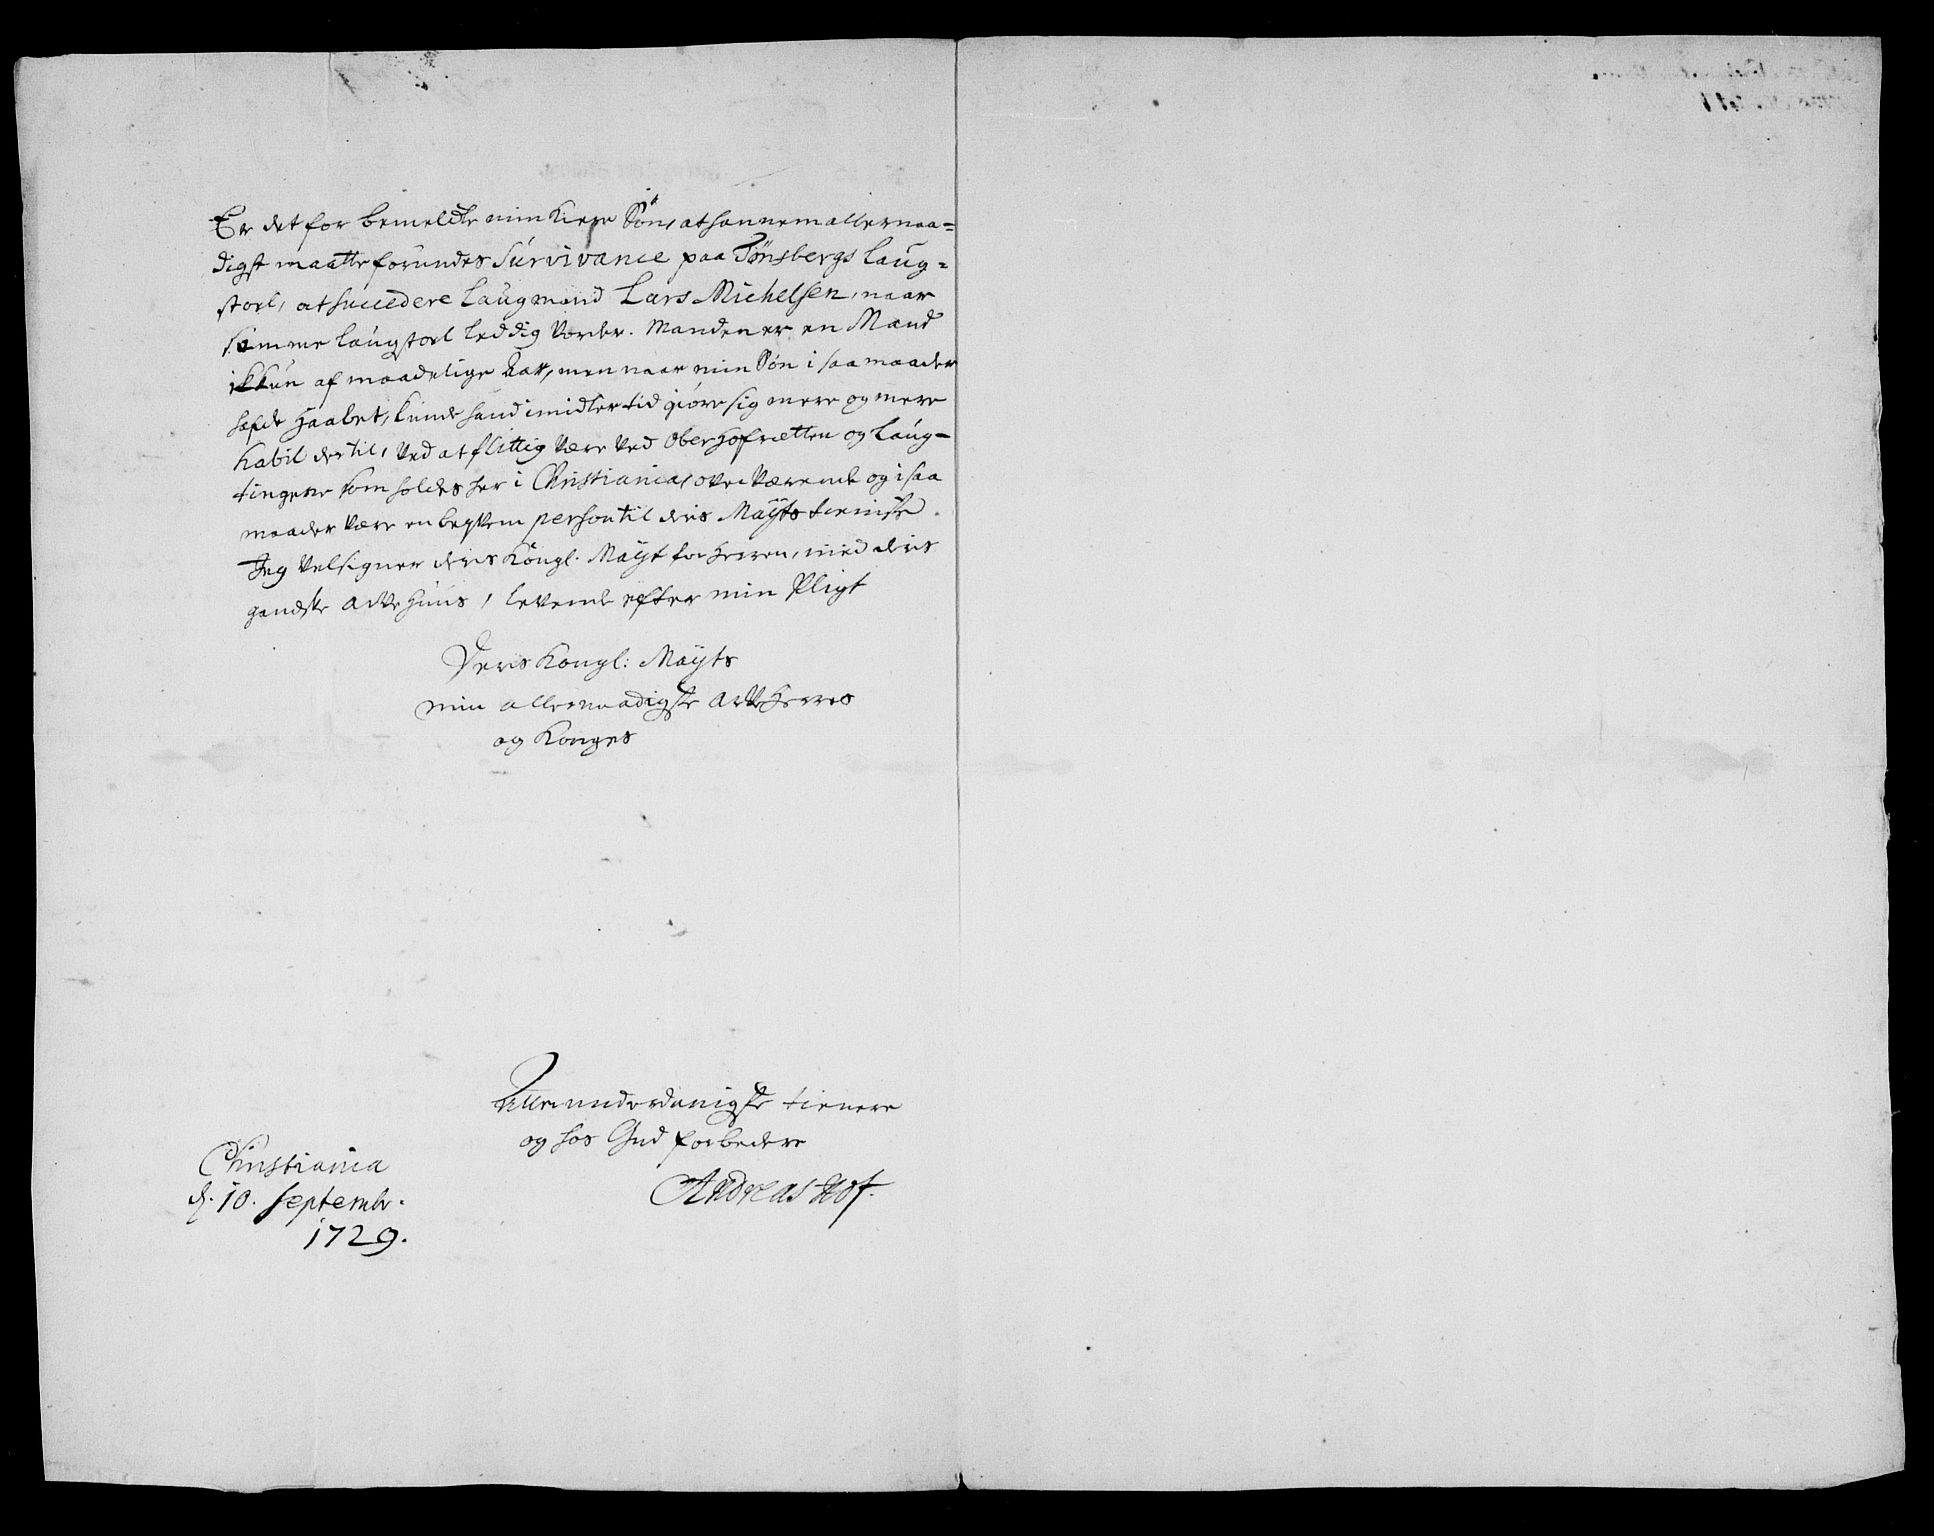 Er det for bemeldte min kiere Søn, at hannem allernaa=
digst maatte forundes Survivance paa Tønsbergs Laug=
stoel, at succedere Laugmand Lars Michelsen, naar
samme laugstoel leddig vorder. Manden er en Mand
ikkun af maadelige Aar, men naar min Søn i saa maader
hafde Haabet, kunde hand imidlertid giøre sig mere og mere
habil dertil, ved at flittig være ved OberHofretten og Laug=
tingene som holdes her i Christiania, overværende og i saa
maader være en beqvem person til deris Mayts tieniste.
Jeg velsigner deris Kongl. Mayt for Herren, med deris
gandske Arve Huus, levende efter min Pligt
Deris Kongl: Mayts
min allernaadigste Arve Herres
og Konges
Allerunderdanigste tienere
og hos Gud forbedere
Andreas Hof.
Christiania
d. 10. Septembr.
1729.